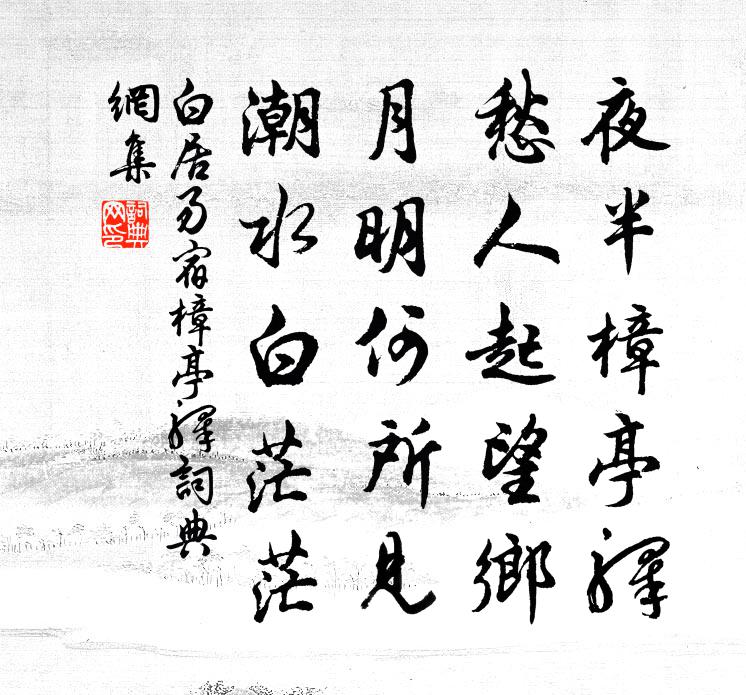 夜半樟亭驛
愁人起望鄉
月明何所見
潮水白茫茫
白居易宿樟亭驛詞典
網集
詞典
网印